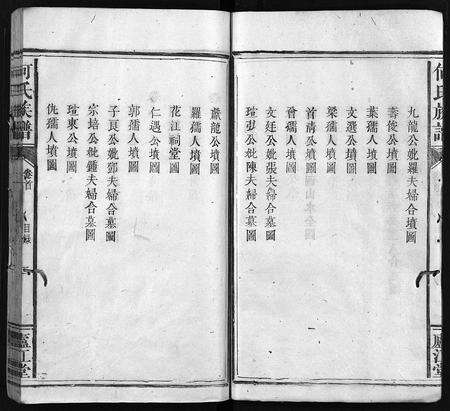 何氏族譜
九龍公妣羅夫婦合墳圖
壽俊公墳圖
葉孺人墳圖
文選公墳圖
梁孺人墳圖
首清公墳圖
曾孺人墳圖
文廷公妣張夫婦合墓圖
瑄張公妣陳夫婦合墓圖
廬江堂
獻龍公墳圖
羅孺人墳圖
花江祠堂圖
仁遇公墳圖
郭孺人墳圖
子良公妣鄧夫婦合墓圖
宗培公妣鍾夫婦合墓圖
瑄東公墳圖
仇孺人墳圖
何氏族譜
卷首
八
目錄
廬江堂